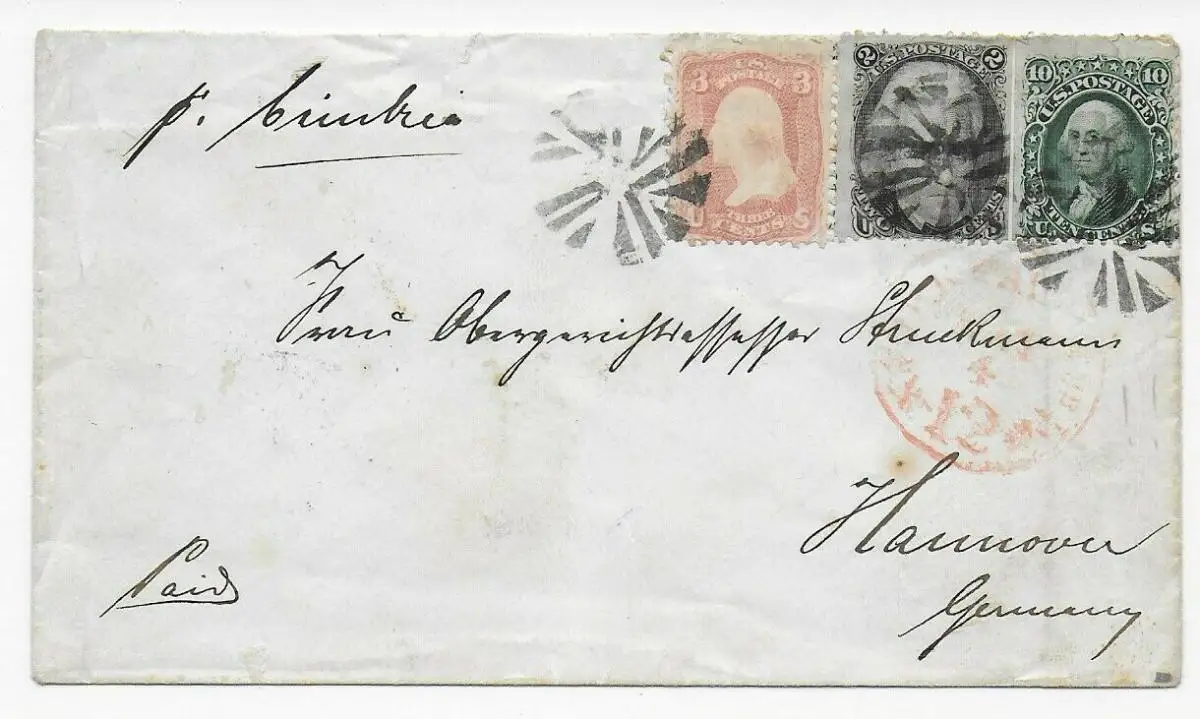 p. Cimbria
3 U.S. POSTAGE 3
THREE CENTS
U S
2 U.S. POSTAGE 2
TWO CENTS
U S
10 U.S. POSTAGE 10
TEN CENTS
U S
Frau Obergerichtsassessor Struckmann
12
Hannover
Germany
Paid